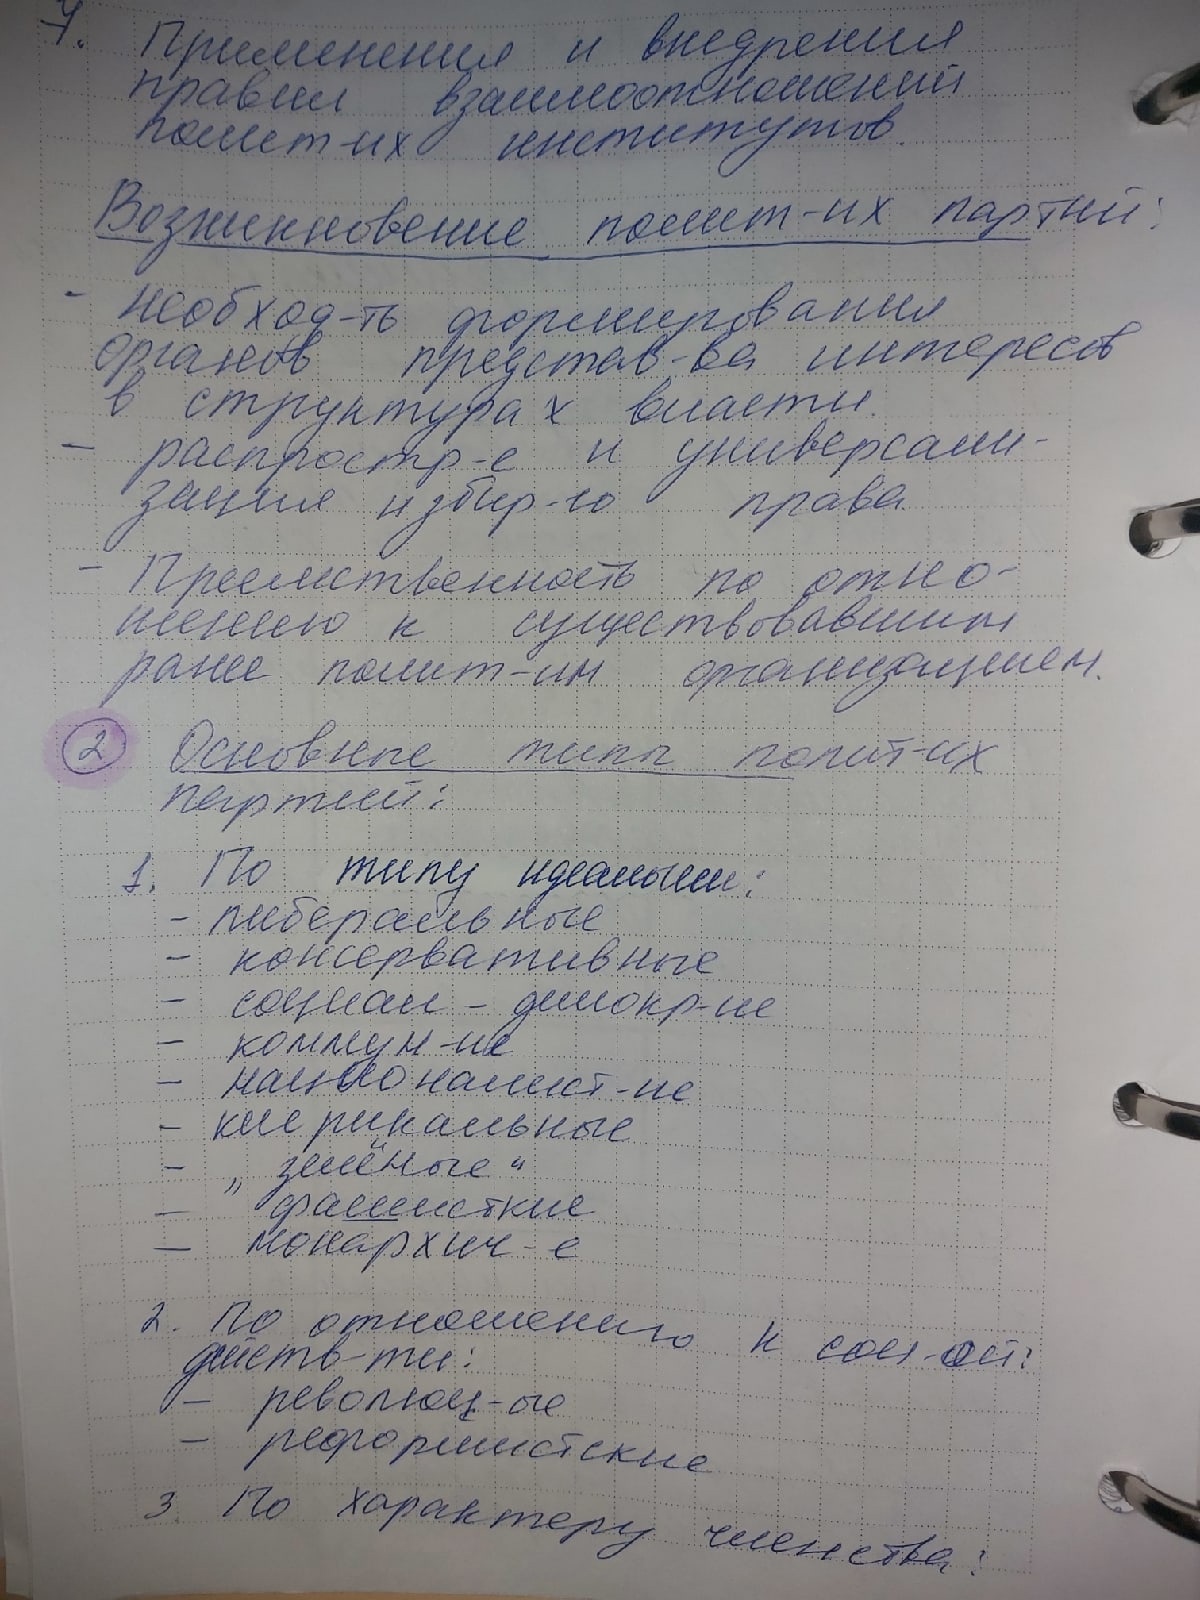 7. Применения и внедрения
правил взаимоотношений
полит-их институтов.
Возникновение полит-их партий:
- необход-ть формирования
органов представ-ва интересов
в структурах власти.
- распростр-е и универсали-
зация избир-го права
- Преемственность по отно-
шению к существовавшим
ранее полит-им организациям.
2 Основные типы полит-их
партий:
1. По типу идеологии:
- либеральные
- консервативные
- социал - демокр-ие
- коммун-ие
- националист-ие
- клерикальные
- „зелёные“
- фашисткие
- монархич-е
2. По отношению к соц-ой
действ-ти:
- революц-ые
- реформистские
3. По характеру членства: